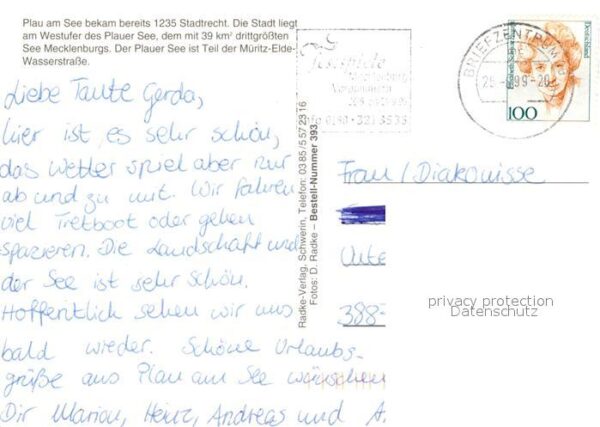 Plau am See bekam bereits 1235 Stadtrecht. Die Stadt liegt
am Westufer des Plauer See, dem mit 39 km² drittgrößten
See Mecklenburgs. Der Plauer See ist Teil der Müritz-Elde-
Wasserstraße.
Liebe Tante Gerda,
hier ist es sehr schön,
das Wetter spiel aber nur
ab und zu mit. Wir fahren
viel Tretboot oder gehen
spazieren. Die Landschaft und
der See ist sehr schön.
Hoffentlich sehen wir uns
bald wieder. Schöne Urlaubs-
grüße aus Plau am See wünschen
Dir Marion, Heinz, Andreas und A.
Radke-Verlag, Schwerin, Telefon: 0385/5572316
Fotos: D. Radke – Bestell-Nummer 393
Festspiele
Mecklenburg
Vorpommern
BRIEFZENTRUM
99-20
Deutschland
100
Frau/Diakonisse
388-
privacy protection
Datenschutz